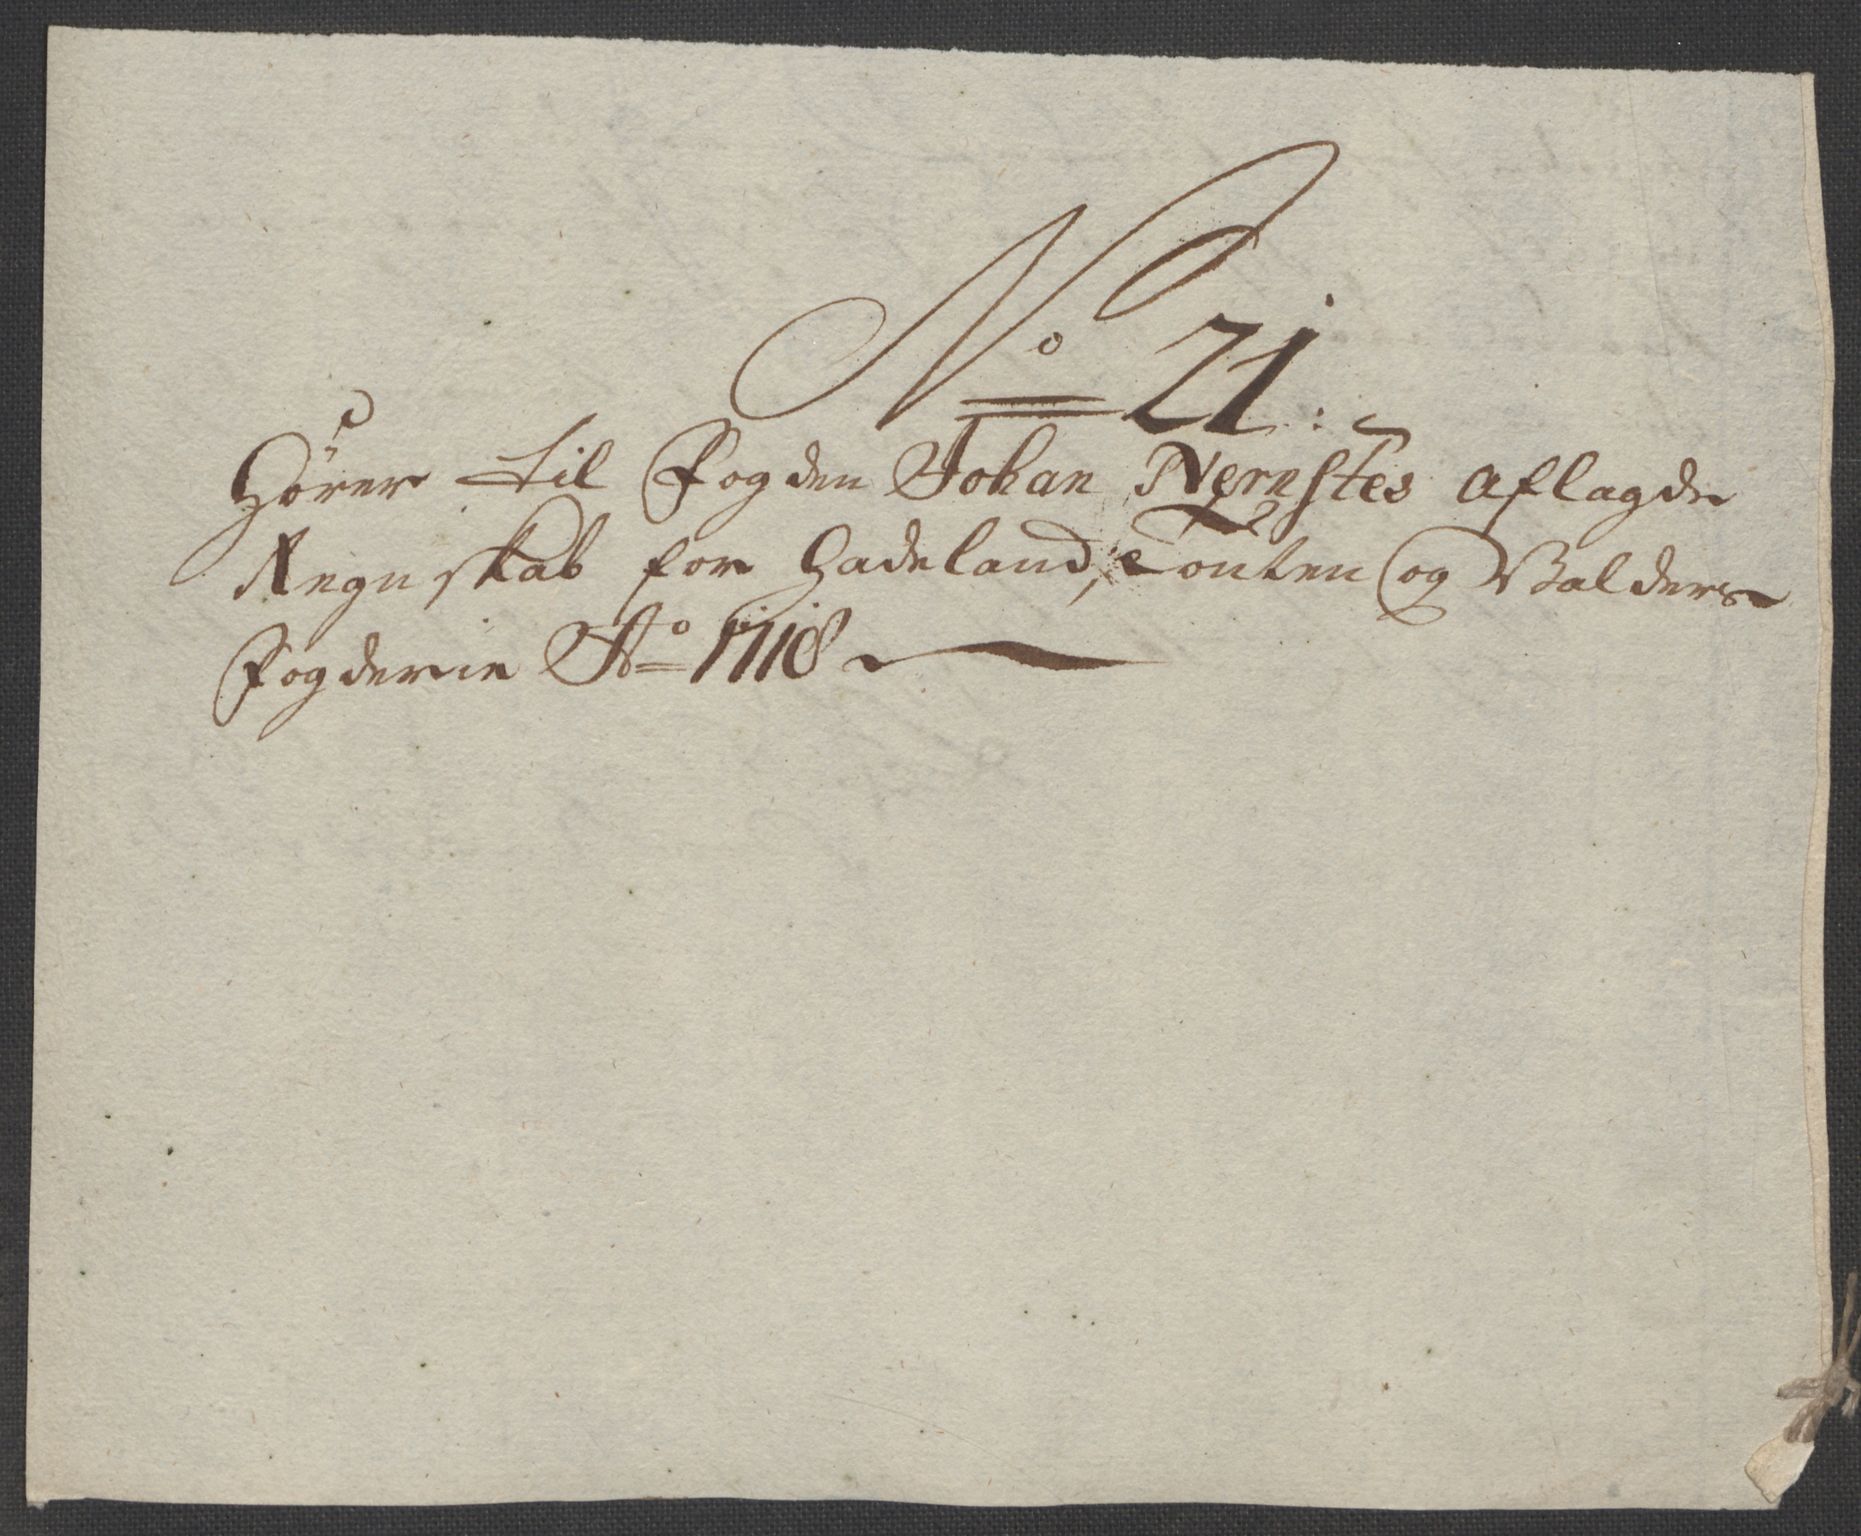 No 21:
Hører til Fogden Johan Nernstes aflagde
Regnskab for Hadeland, Totten og Valders
Fogderie Ao 1718